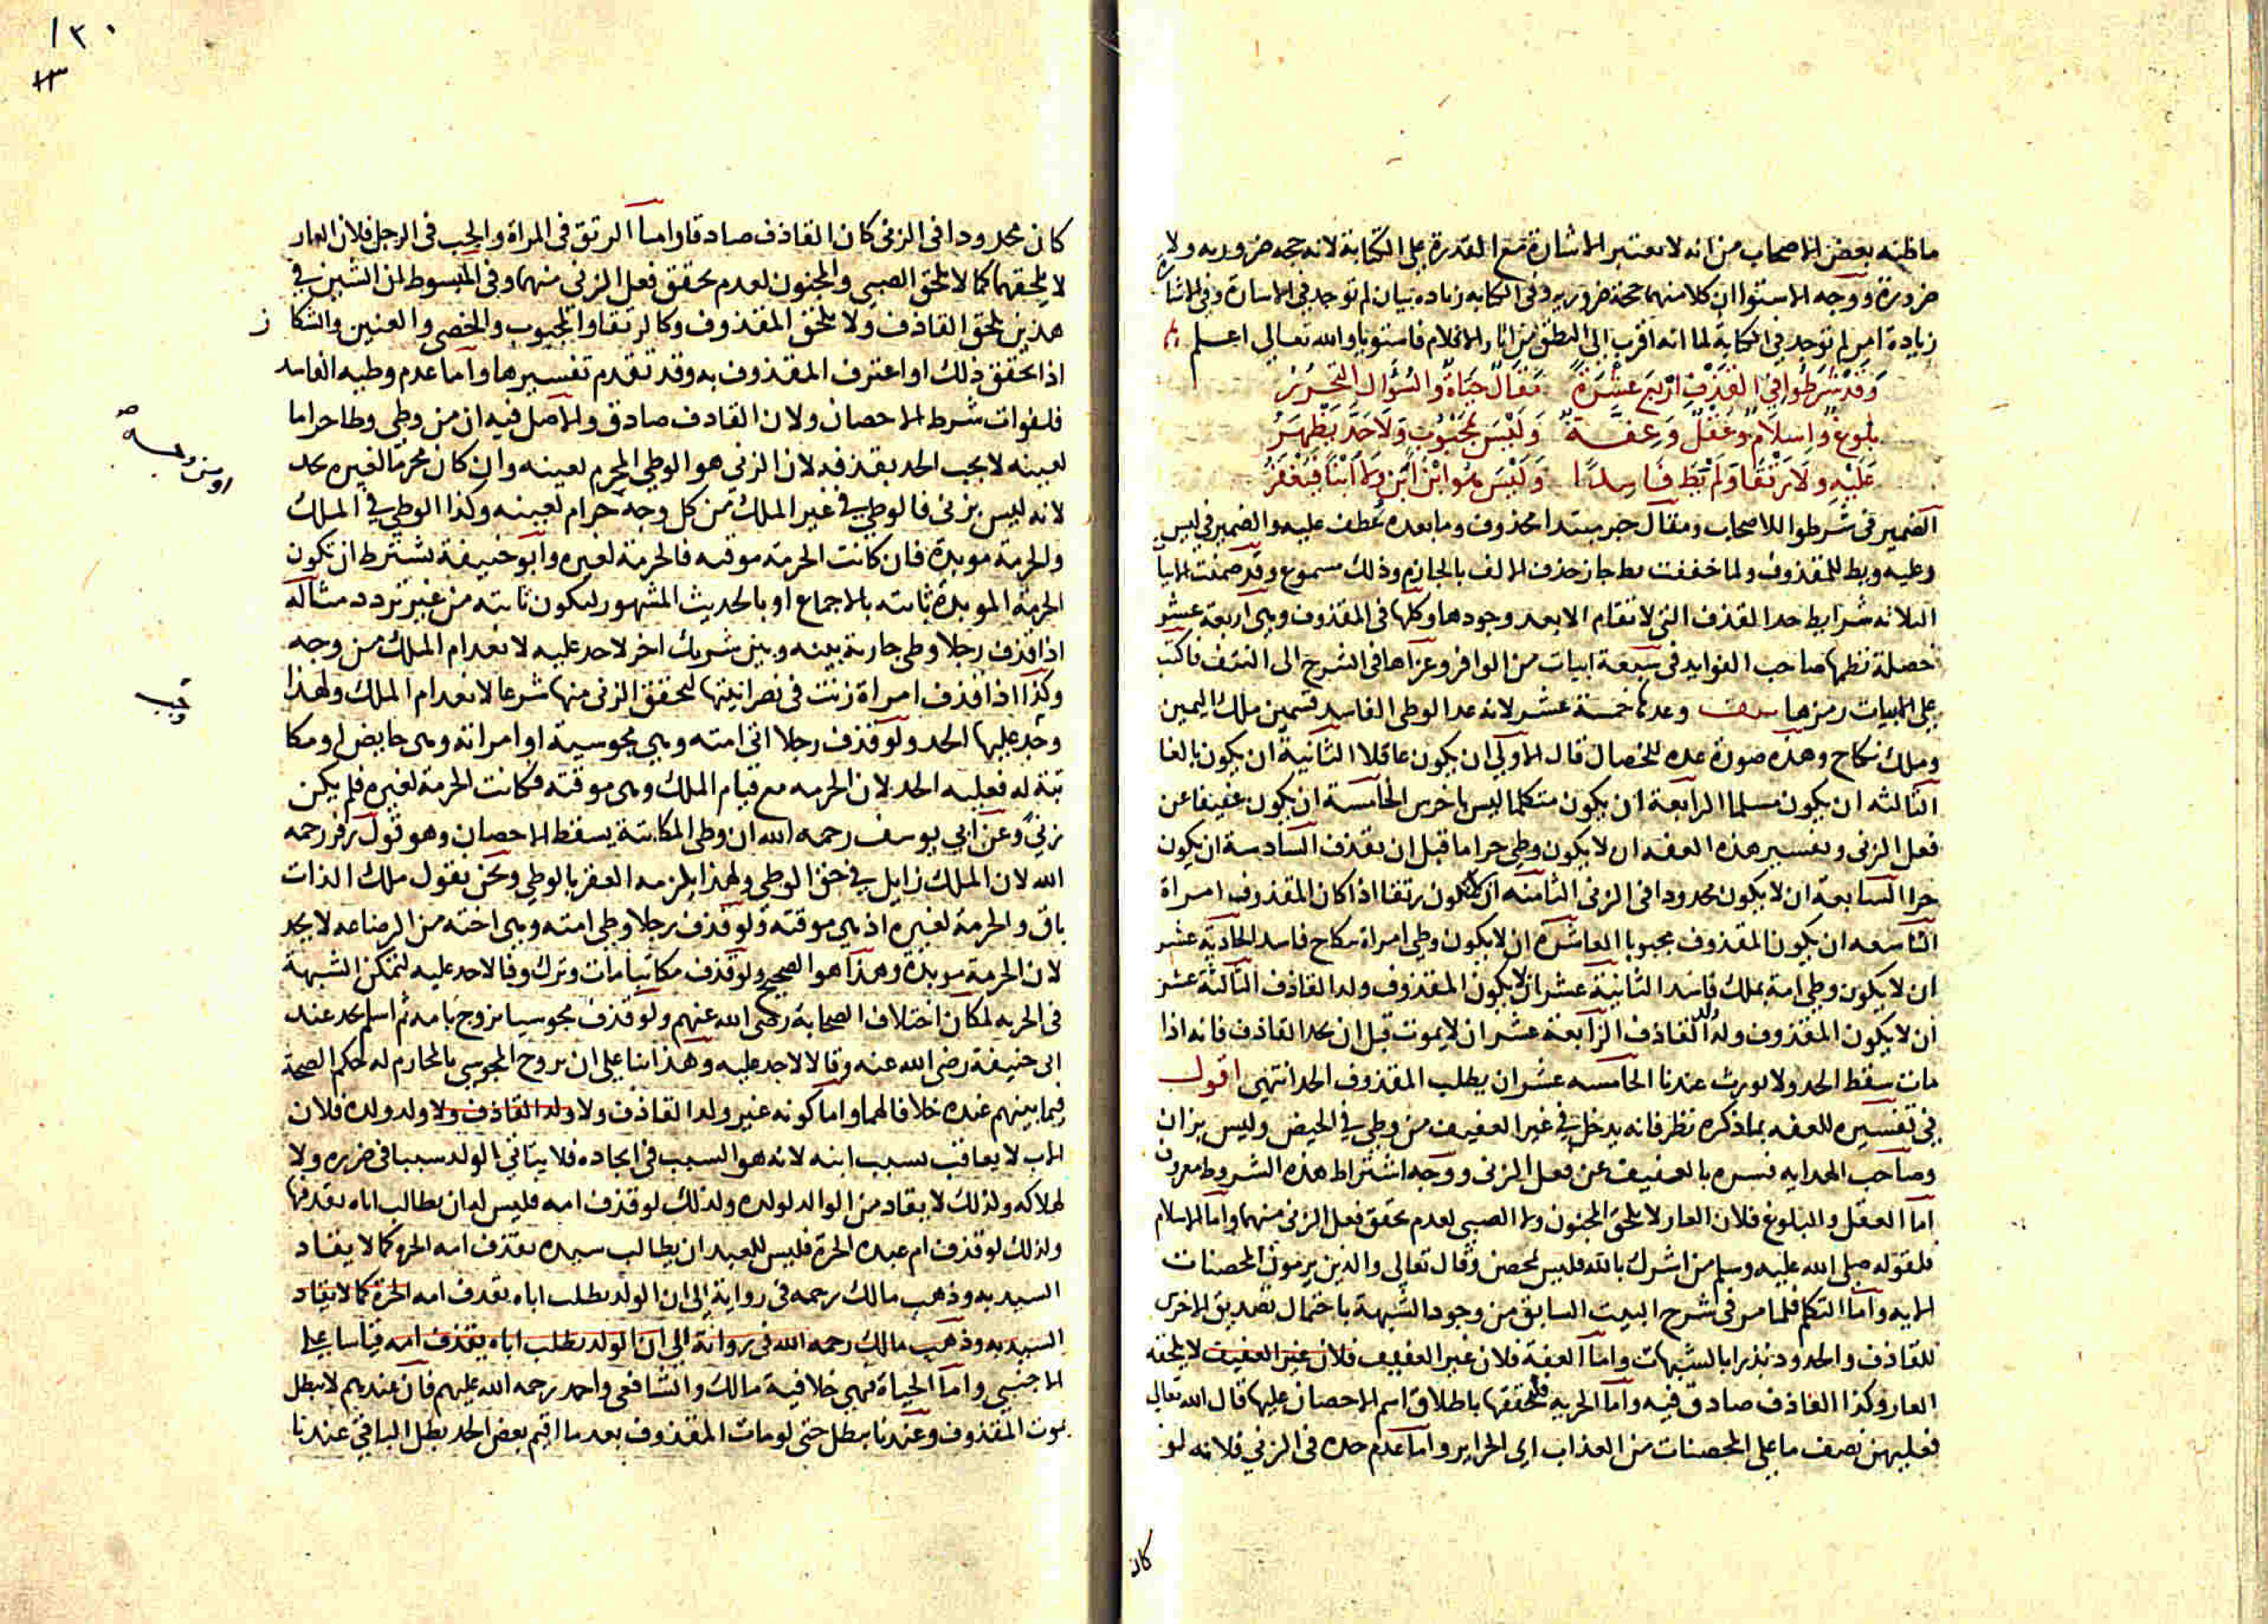 ما ظنه بعض الاصحاب من انه لا تعتبر الاشارة مع القدرة على الكتابة لانه حجه ضروريه ولا
ضرورة ووجه الاستوا ان كلا منهما حجة ضروريه وفى الكتابه زياده بيان لم توجد فى الاشارة وفى الاشارة
زيادة امر لم توجد فى الكتابة لما انه اقرب الى النطق من اثار الاقلام فاستويا والله تعالى اعلم
وَقَدْ شَرَطُوا فِي القَذْفِ اربَع عَشْرَةً مَقَالٌ حَيَاةٌ وَالسُؤَال التَحَرُّرُ
بلوغ واِسلامٌ وعَقْلٌ وَعِفَّةٌ وَلَيْسَ بِمَجْبُوبٍ وَلَا حَدَّ يَظْهَرُ
عَلَيْهِ وَلَا رَتْقَا وَلَمْ يَطَ فَاسِدًا وَلَيْسَ هُوَ ابْنُ ابْنٍ وَلَا ابْنًا
الضمير فى شرطوا للاصحاب ومقال خبر مبتدا محذوف وما بعده عُطف عليه والضمير فى ليس
وعليه ويط للمقذوف ولما خففت يط جاز حذف الالف بالجازم وذلك مسموع وقد ضمنت الابيات
الثلاثه شرايط حد القذف التى لا تقام الا بعد وجودها وكلها فى المقذوف وهى اربعة عشر
خصلة نظمها صاحب الفوايد فى سبعة ابيات من الوافر وعزاها فى الشرح الى النتف فاكتب
على الابيات رمزها وعدتها خمسة عشر لانه عد الوطى الفاسد قسمين ملك اليمين
وملك نكاح وهذه صورة عده للخصال قال الاولى ان يكون عاقلا الثانية ان يكون بالغا
الثالثه ان يكون مسلما الرابعة ان يكون متكلما ليس باخرس الخامسة ان يكون عفيفا عن
فعل الزنى وتفسير هذه العفه ان لا يكون وطى حراما قبل ان يقذف السادسة ان يكون
حرا السابعة ان لا يكون محدودا فى الزنى الثامنه ان لا تكون رتقا اذا كان المقذوف امراة
التاسعه ان يكون المقذوف مجبوبا العاشرة ان لا يكون وطى امراة بنكاح فاسد الحادية عشر
ان لا يكون وطى امة بملك فاسد الثانية عشر ان لا يكون المقذوف ولد القاذف الثالثة عشر
ان لا يكون المقذوف ولد ولد القاذف الرابعة عشر ان لا يموت قبل ان يحد القاذف فانه اذا
مات سقط الحد ولا يورث عندنا الخامسه عشر ان يطلب المقذوف الحد انتهى اقول
فى تفسيره للعفه بما ذكره نظر فانه يدخل فى غير العفيف من وطى فى الحيض وليس بزان
وصاحب الهدايه فسره بالعفيف عن فعل الزنى ووجه اشتراط هذه الشروط معروف
اما العقل والبلوغ فلان العار لا يلحق المجنون ولا الصبى لعدم تحقق فعل الزنى منهما واما الاسلام
فلقوله صلى الله عليه وسلم من اشرك بالله فليس بمحصن وقال تعالى والذين يرمون المحصنات
الايه واما التكلم فلما مر فى شرح البيت السابق من وجود الشبهة باحتمال تصديق الاخرس
للقاذف والحدود تدرا بالشبهات واما العفة فلان غير العفيف فلان غير العفيف لا يلحقه
العار وكذا القاذف صادق فيه واما الحريه فلتحققها باطلاق اسم الاحصان عليها قال الله تعالى
فعليهن نصف ما على المحصنات من العذاب اى الحراير واما عدم حده فى الزنى فلانه لو
كان
١٣٠
كان محدودا فى الزنى كان القاذف صادقا واما الرتق فى المراة والجب فى الرجل فلان العار
لا يلحقهما كما لا يلحق الصبى والمجنون لعدم تحقق فعل الزنى منهما وفى المبسوط لان الشين فى
هذين يلحق القاذف ولا يلحق المقذوف وكالرتقا والمجبوب والخصى والعنين والشكاز
اذا تحقق ذلك او اعترف المقذوف به وقد تقدم تفسيرها واما عدم وطيه الفاسد
فلفوات شرط الاحصان ولان القاذف صادق والاصل فيه ان من وطى وطا حراما
لعينه لا يجب الحد بقذفه لان الزنى هو الوطى المحرم لعينه وان كان محرما لغيره يحد
لانه ليس بزنى فالوطى فى غير الملك من كل وجه حرام لعينه وكذا الوطى فى الملك
والحرمة موبدة فان كانت الحرمة موقته فالحرمة لغيره وابو حنيفة يشترط ان تكون
الحرمة الموبدة ثابته بالاجماع او بالحديث المشهور لتكون ثابته من غير تردد مثاله
اذا قذف رجلا وطى جارية بينه وبين شريك اخر لا حد عليه لانعدام الملك من وجه
وكذا اذا قذف امراة زنت فى نصرانيتها لتحقق الزنى منها شرعا لانعدام الملك ولهذا
وجد عليها الحد ولو قذف رجلا اتى امته وهى مجوسية او امراته وهى حايض او مكا
تبة له فعليه الحد لان الحرمه مع قيام الملك وهى موقته فكانت الحرمة لغيره فلم يكن
زنى وعن ابى يوسف رحمه الله ان وطى المكاتبة يسقط الاحصان وهو قول زفر رحمه
الله لان الملك زايل فى حق الوطى ولهذا يلزمه العقر بالوطى ونحن نقول ملك الذات
باق والحرمة لغيره اذ هى موقتة ولو قذف رجلا وطى امته وهى اخته من الرضاعه لا يحد
لان الحرمة موبدة وهذا هو الصحيح ولو قذف مكاتبا مات وترك وفا لا حد عليه لتمكن الشبهة
فى الحريه لمكان اختلاف الصحابة رضى الله عنهم ولو قذف مجوسيا تزوج بامه ثم اسلم يحد عند
ابى حنيفة رضى الله عنه وقالا لا حد عليه وهذا بنا على ان تزوج المجوسى بالمحارم له حكم الصحة
فيما بينهم عنده خلافا لهما واما كونه غير ولد القاذف ولا ولد القاذف ولا ولد ولده فلان
الاب لا يعاقب بسبب ابنه لانه هو السبب فى ايجاده فلا يتاتى الولد سببا فى ضرره ولا
لهلاكه ولذلك لا يقاد من الوالد لولده ولذلك لو قذف امه فليس له ان يطالب اباه بقذفها
ولذلك لو قذف ام عبده الحرة فليس للعبد ان يطالب سيده بقذف امه الحرة كما لا يقاد
السيد به وذهب مالك رحمه فى رواية الى ان الولد يطلب اباه بقذف امه الحرة كما لا يقاد
السيد به وذهب مالك رحمه الله فى رواية الى ان الولد يطلب اباه بقذف امه قياسا على
الاجنبى واما الحياة فهى خلافية مالك والشافعى واحمد رحمه الله عليهم فان عندهم لا يبطل
بموت المقذوف وعندنا يبطل حتى لو مات المقذوف بعد ما اقيم بعض الحد بطل الباقى عندنا